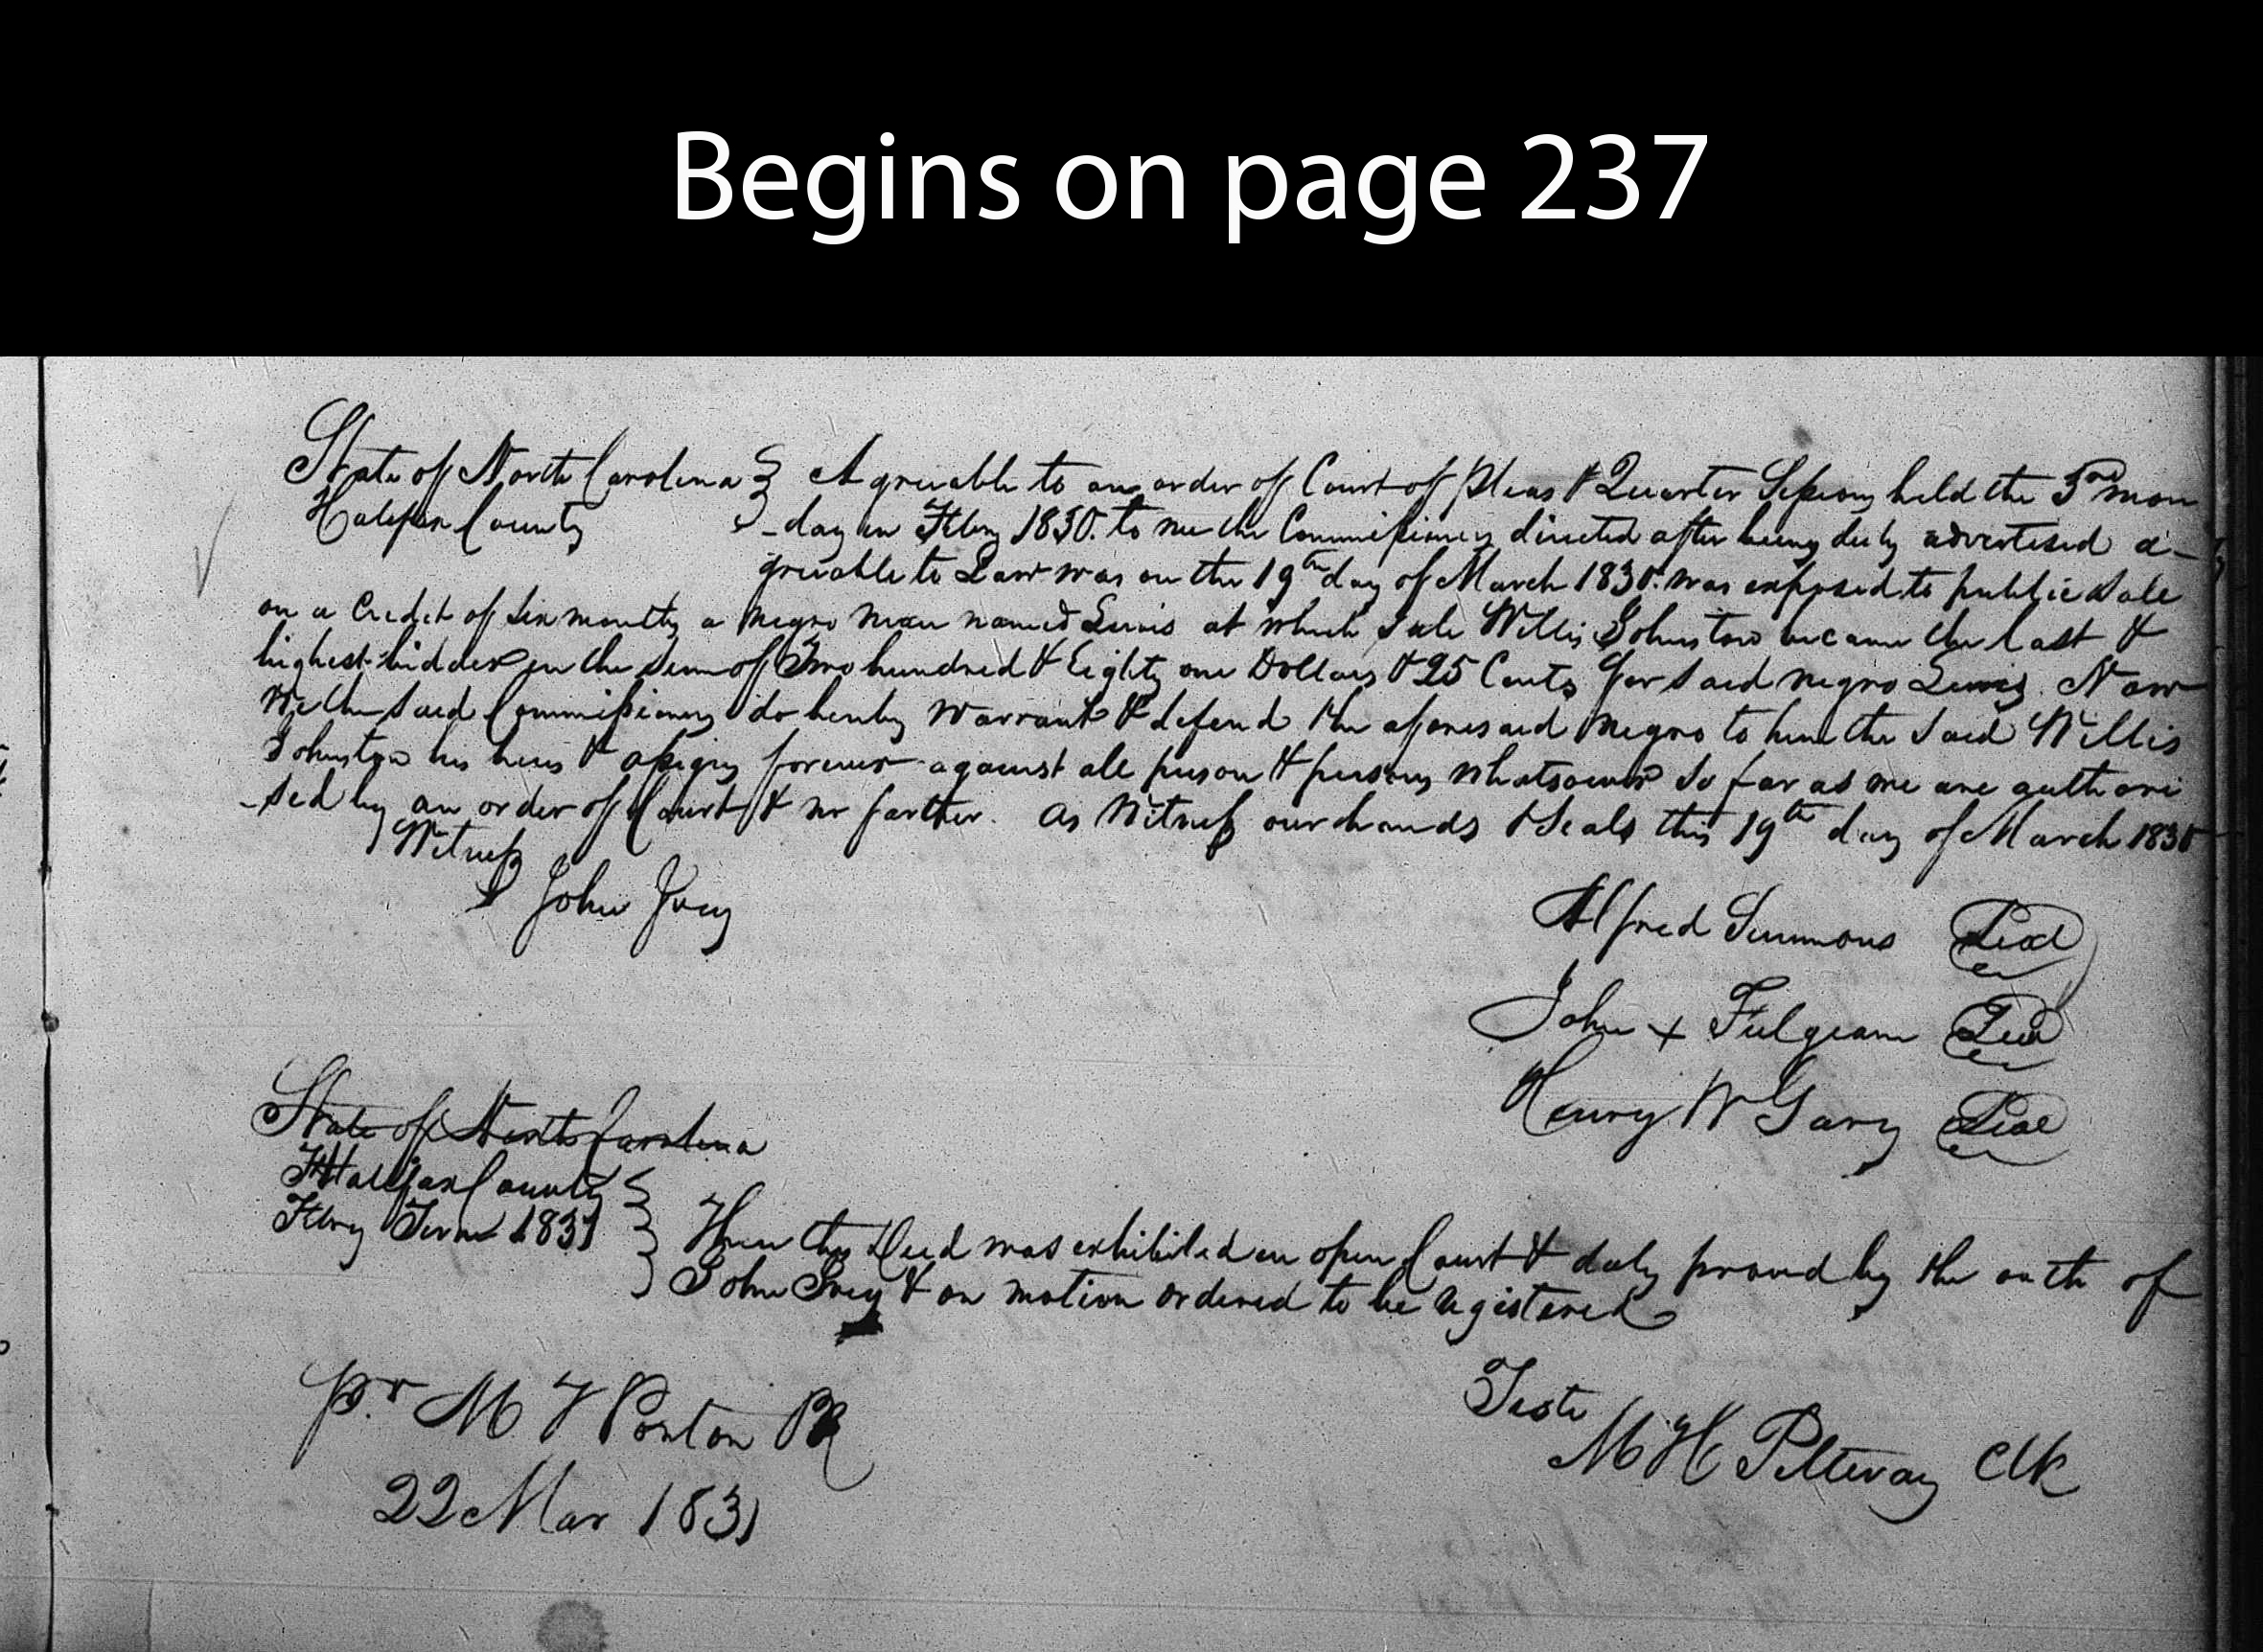 Begins on page 237
State of North Carolina } Agreeable to an order of Court of Pleas & Quarter Sessions held the 3rd mon
Halifax County } -day in Feby 1830. to me the Commissioners directed after being duly advertised a-
greeable to Law was on the 19th day of March 1830. was exposed to public Sale
on a Credit of Six months a Negro man named Lewis at which Sale Willis Johnston became the last &
highest bidder in the Sum of Two hundred & Eighty one Dollars & 25 Cents for Said negro Lewis. Now
We the Said Commissioners do hereby Warrant & defend the aforesaid Negro to him the Said Willis
Johnston his heirs & assigns forever against all person & persons whatsoever So far as we are authori
-sed by an order of Court & no farther. As Witness our hands & Seals this 19th day of March 1830
Witness
John Ivey
Alfred Simmons Seal
John + Fulgeam Seal
Henry W Gary Seal
State of North Carolina
Halifax County
Feby Term 1831 } Then this Deed was exhibited in open Court & duly proved by the oath of
John Ivey & on motion ordered to be registered
Teste
pr M T Ponton PR
M H Pettway Clk
22 Mar 1831